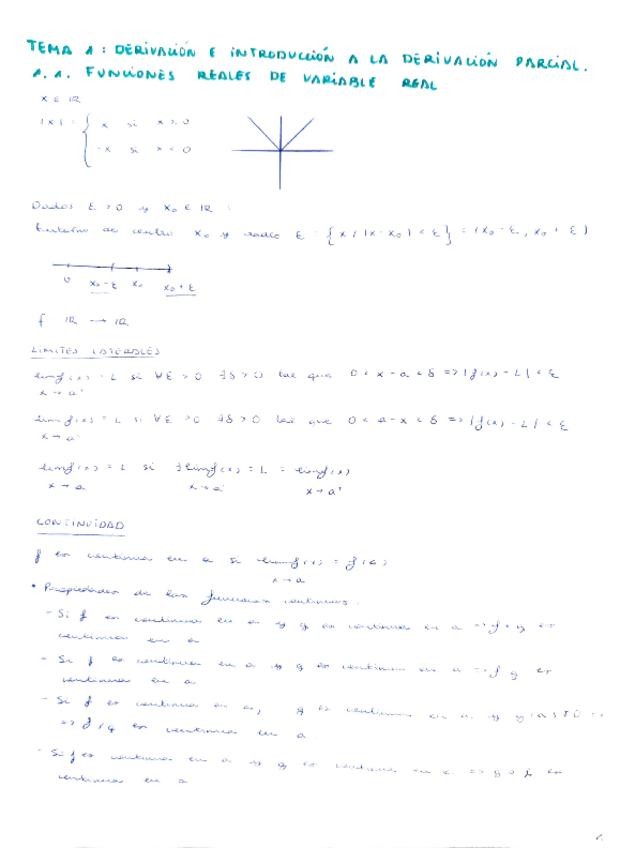 TEMA 1: DERIVACIÓN E INTRODUCCIÓN A LA DERIVACIÓN PARCIAL.
1.1. FUNCIONES REALES DE VARIABLE REAL
x ∈ IR
|x| = { x si x > 0
-x si x < 0
Dados ε > 0 y x₀ ∈ IR :
Entorno de centro x₀ y radio ε = {x / |x - x₀| < ε} = (x₀ - ε, x₀ + ε)
0 x₀-ε x₀ x₀+ε
f IR → IR
LIMITES LATERALES
lim f(x) = L si ∀ε > 0 ∃δ > 0 tal que 0 < x - a < δ => |f(x) - L| < ε
x → a⁺
lim f(x) = L si ∀ε > 0 ∃δ > 0 tal que 0 < a - x < δ => |f(x) - L| < ε
x → a⁻
lim f(x) = L si ∃ lim f(x) = L = lim f(x)
x → a x → a⁻ x → a⁺
CONTINUIDAD
f es continua en a si lim f(x) = f(a)
x → a
• Propiedades de las funciones continuas.
- Si f es continua en a y g es continua en a => f + g es
continua en a
- Si f es continua en a y g es continua en a => f g es
continua en a
- Si f es continua en a, g es continua en a y g(a) ≠ 0 =>
=> f/g es continua en a
- Si f es continua en a y g es continua en => g o f es
continua en a